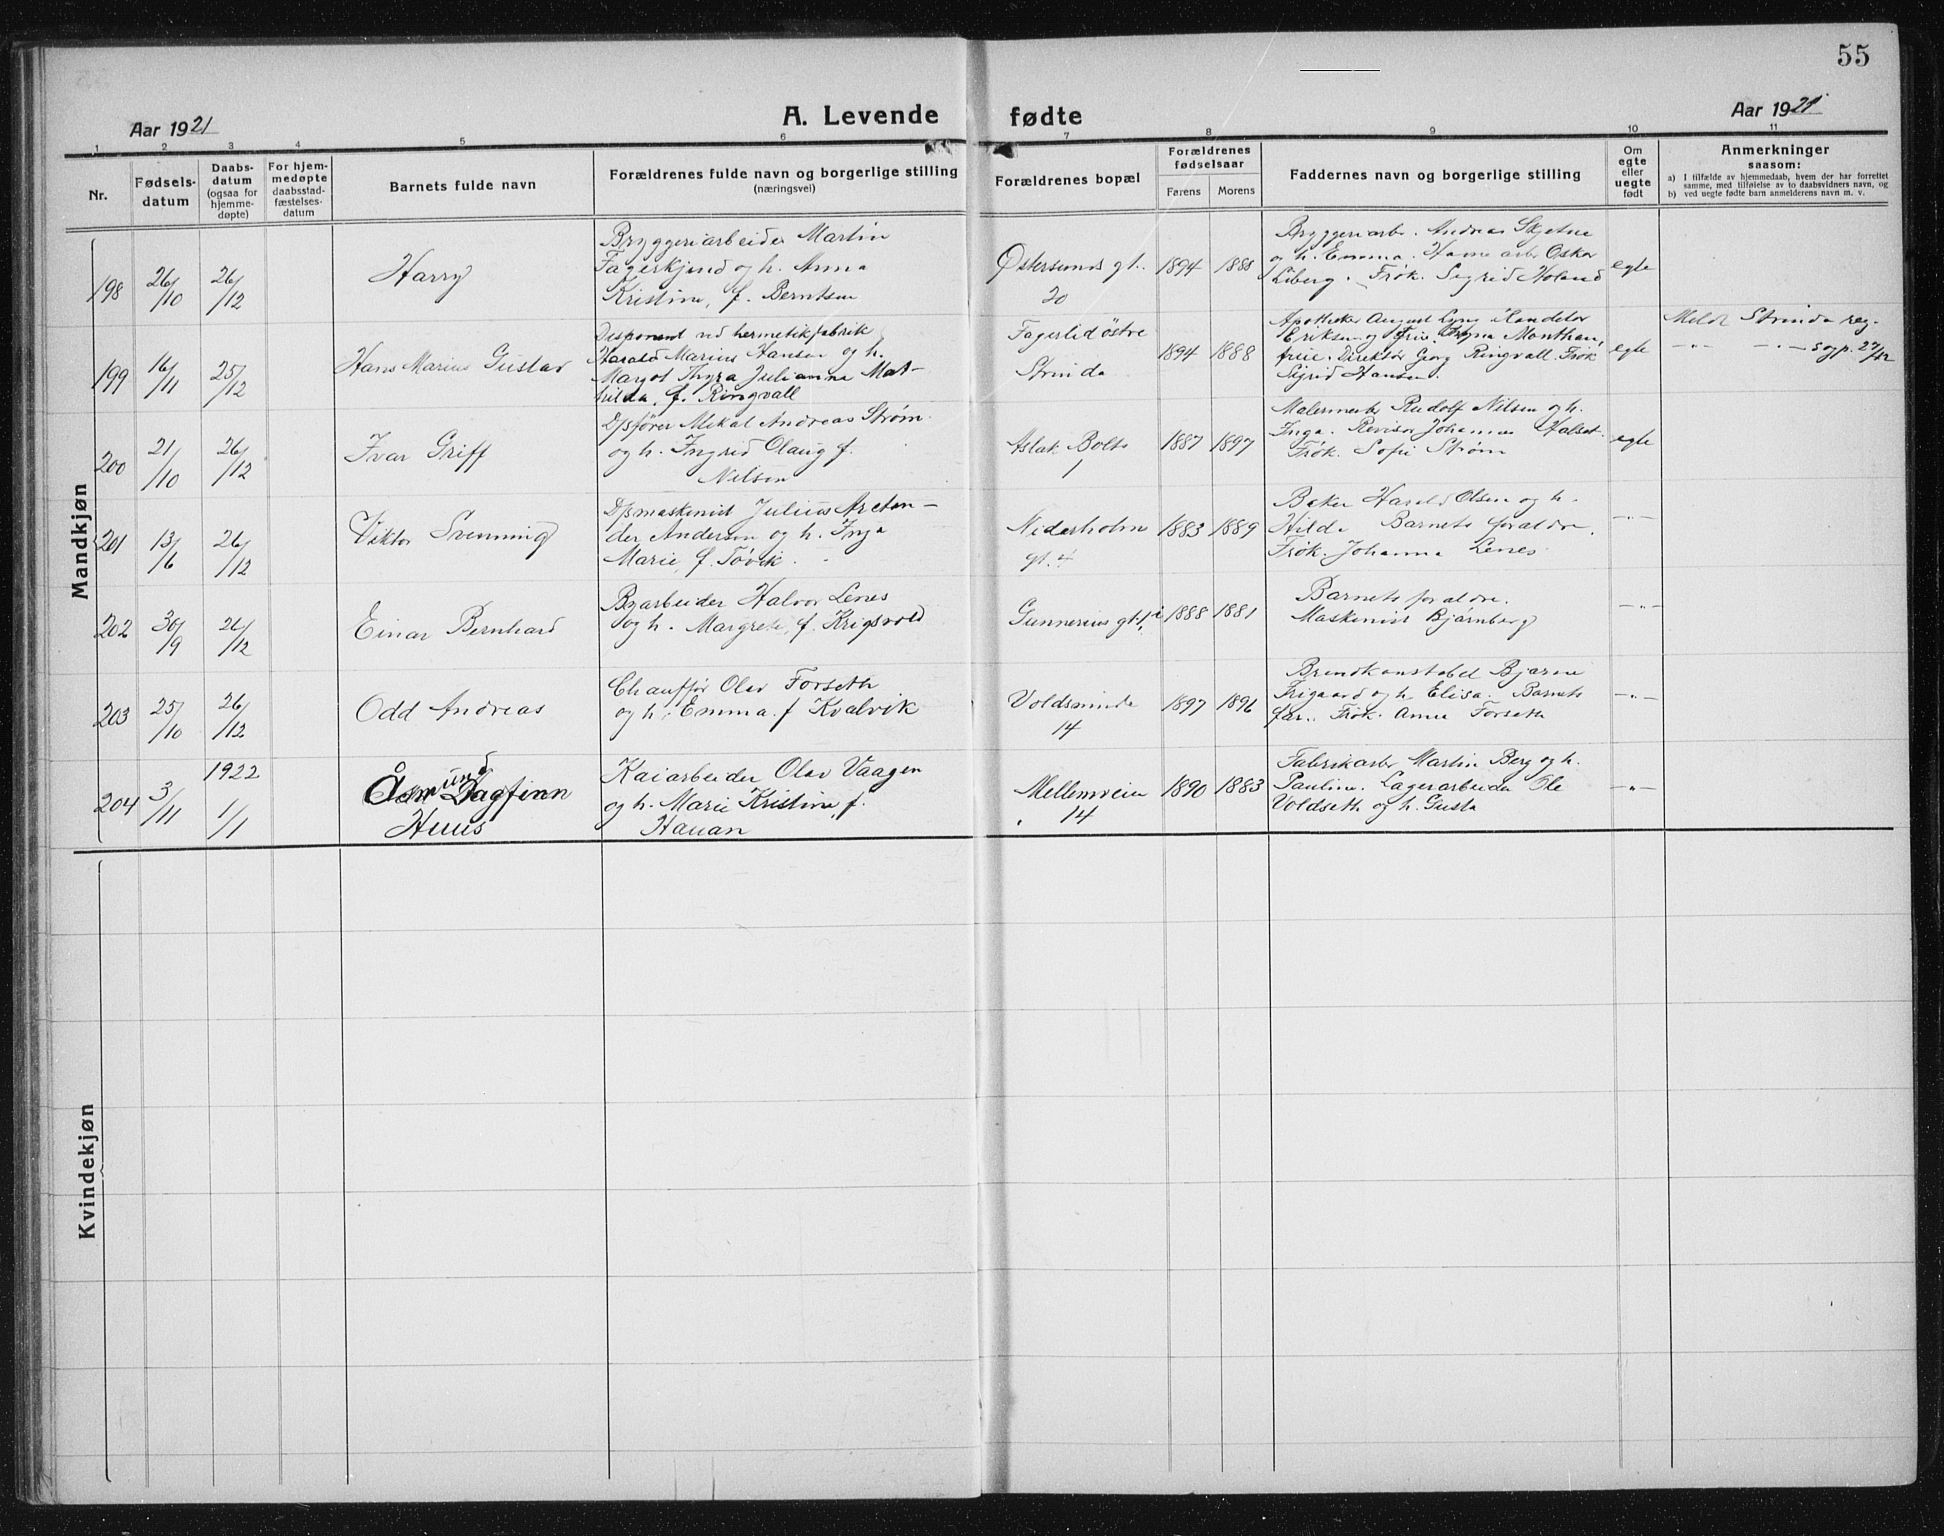 55
Aar 1921
A. Levende fødte
Aar 1921
1 2 3 4 5 6 7 8 9 10 11
Nr.
Fødselsdatum
Daabsdatum (ogsaa for hjemmedøpte)
For hjemmedøpte daabsstadfæstelsesdatum
Barnets fulde navn
Forældrenes fulde navn og borgerlige stilling
(næringsvei)
Forældrenes bopæl
Forældrenes fødselsaar
Farens Morens
Faddernes navn og borgerlige stilling
Om egte eller uegte født
Anmerkninger
saasom:
a) I tilfælde av hjemmedaab, hvem der har forrettet
samme, med tilføielse av to daabsvidners navn, og
b) ved uegte fødte barn anmelderens navn m. v.
Mandkjøn
198 26/10 26/12 Harry
Bryggeriarbeider Martin
Fagerskjend og h. Anna
Kristine, f. Berntsen
Østersunds gt.
20
1894 1888
Bryggeriarb. Andreas Skjetne
og h. Emma. Havnearb. Oskar
Liberg. Frøk. Sigrid Holand
egte
199 16/11 25/12 Hans Marius Gustav
Disponent ved hermetikfabrik
Harald Marius Hansen og h.
Margot Thyra Julianna Mat-
hilda, f. Ringvall
Fagerlid østre
Strinda
1894 1888
Apotheker August Lyng Handelsr
Eriksen og frue. Monthan,
frue. Direktør Georg Ringvall Frøk
Sigrid Hansen.
egte
Meldt Strinda reg.
—"— —"— sogp. 27/12
200 21/10 26/12 Ivar Griff
D/sfører Mikal Andreas Strøm
og h. Ingrid Olaug f.
Nilsen
Aslak Bolts
1
1887 1897
Malermester Rudolf Nilsen og h.
Inga. Revisor Johannes Halset.
Frøk. Sofie Strøm
egte
201 13/6 26/12 Viktor Svenning
D/smaskinist Julius
der Anderson og h. Inga
Marie, f. Tøvik.
Niderholm
gt. 4
1883 1889
Baker Harald Olsen og h.
Hilda Barnets forældre.
Frøk. Johanna Lenes.
—"—
202 30/9 26/12 Einar Bernhard
Byarbeider Halvor Lenes
og h. Margrete, f. Krigsvold
Gunnerius gt.
1888 1881
Barnets forældre.
Maskinist Bjørnberg
—"—
203 25/10 26/12 Odd Andreas
Chauffør Olav Forseth
og h. Emma f. Kvalvik
Voldsminde
14
1897 1896
Brandkonstabel Bjarne
Frigaard og h. Elisa. Barnets
far. Frøk. Anna Forseth
—"—
204 3/11 1922 1/1 Åsmund Dagfinn
Huus
Kaiarbeider Olav Vaagen
og h. Marie Kristine, f.
Hauan
Mellemveien
14
1890 1883
Fabrikarb. Martin Berg og h.
Pauline. Lagerarbeider Ole
Voldseth og h. Gusta
—"—
Kvindekjøn